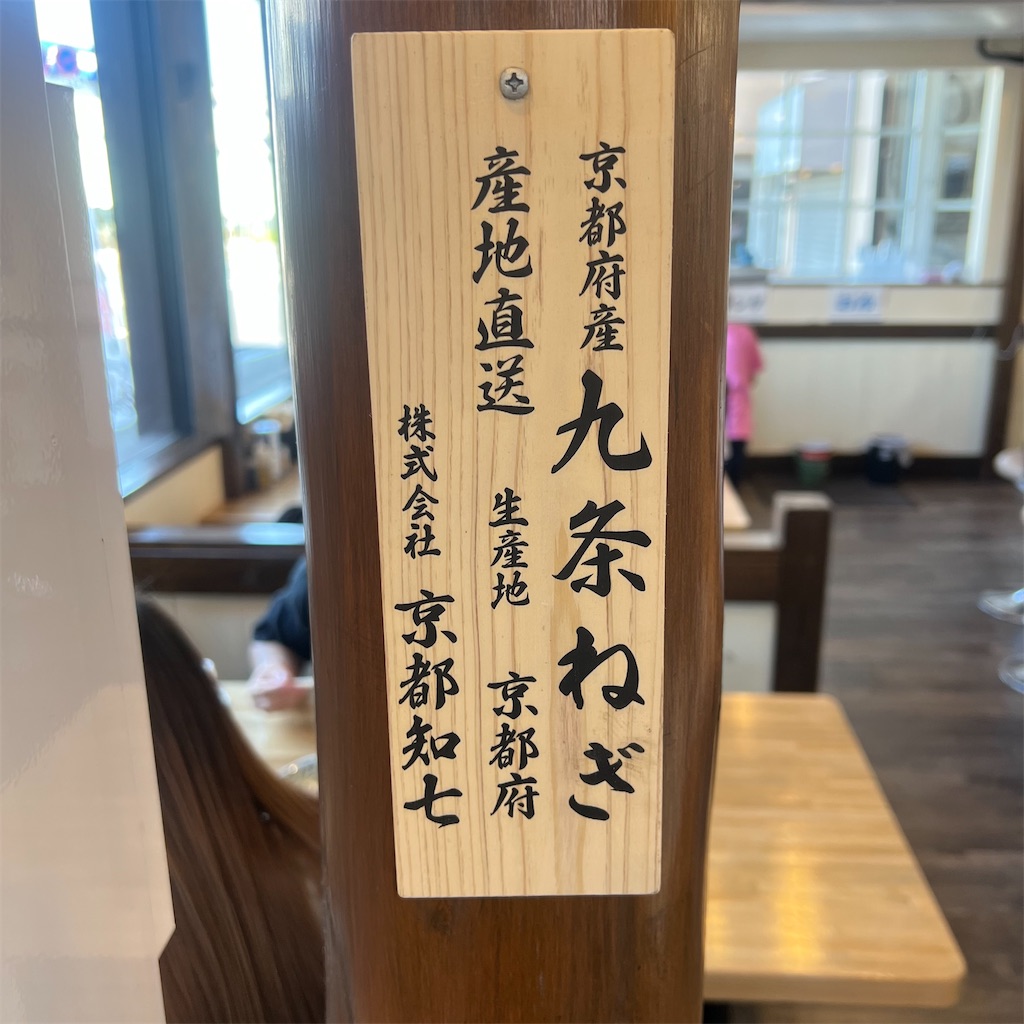 京都府産 九条ねぎ
産地直送 生産地 京都府
株式会社 京都知七